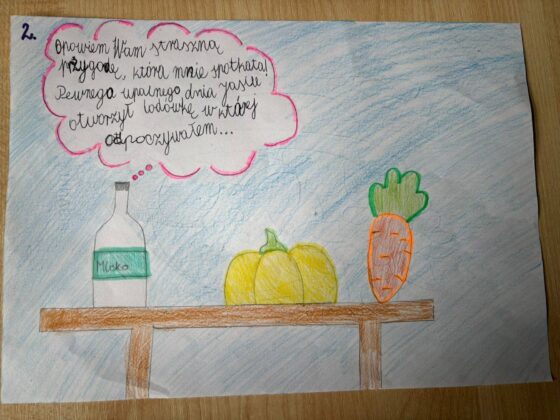 2.
Opowiem Wam straszną
przygodę, która mnie spotkała!
Pewnego upalnego dnia Jasiu
otworzył lodówkę w której
odpoczywałem...
Mleko